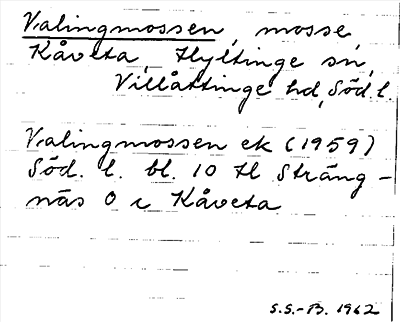 Valingmossen, mosse,
Kåveta, Hyltinge sn,
Villåttinge hd, Söd. l.
Valingmossen ek (1959)
Söd. l. bl. 10 tl Sträng-
näs O i Kåveta
S.S.-B. 1962